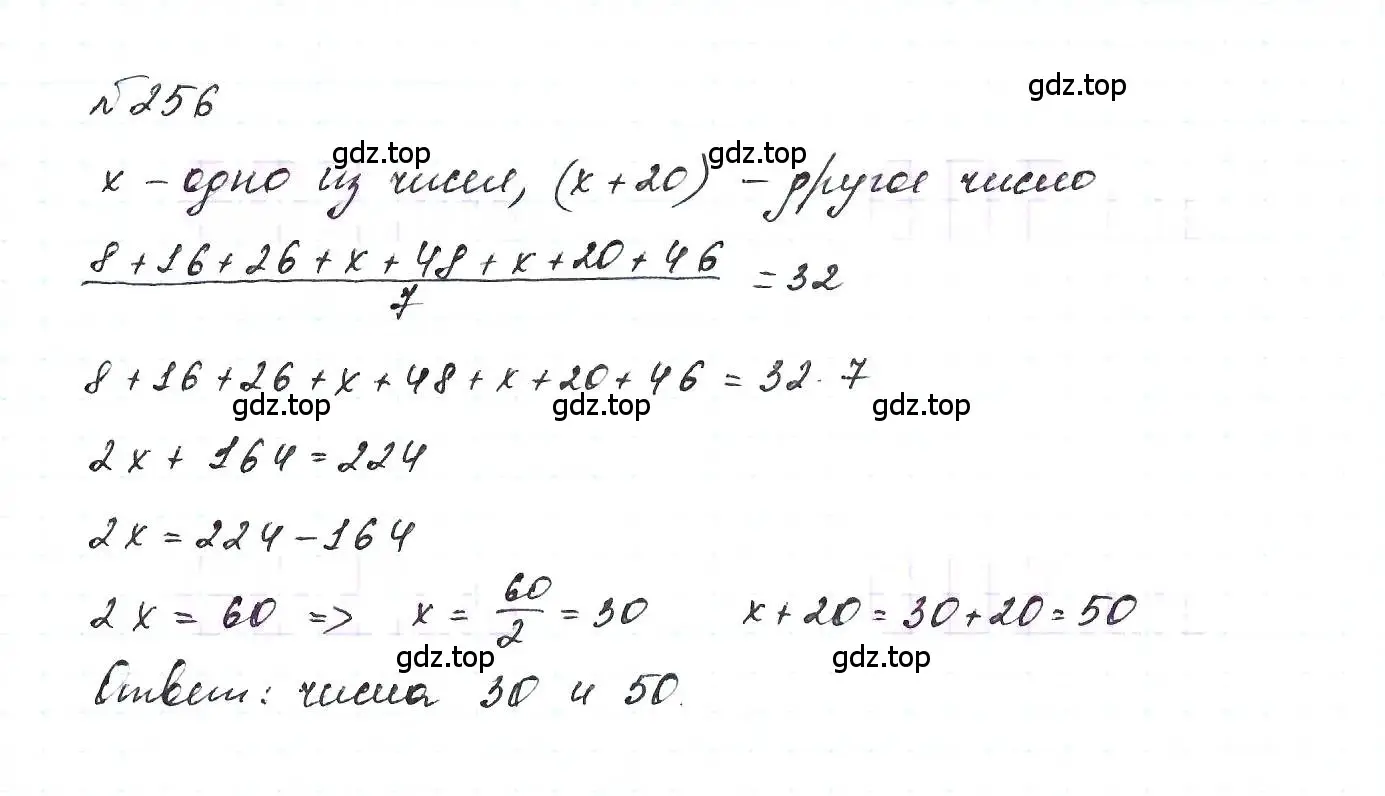 №256
gdz.top
gdz.top gdz.top
x – одно из чисел, (x+20) – другое число
8+16+26+x+48+x+20+46
7
= 32
8+16+26+x+48+x+20+46 = 32·7
gdz.top gdz.top gdz.top
2x + 164 = 224
2x = 224 – 164
2x = 60 => x = 60/2 = 30 x+20 = 30+20 = 50
gdz.top gdz.top
Ответ: числа 30 и 50.